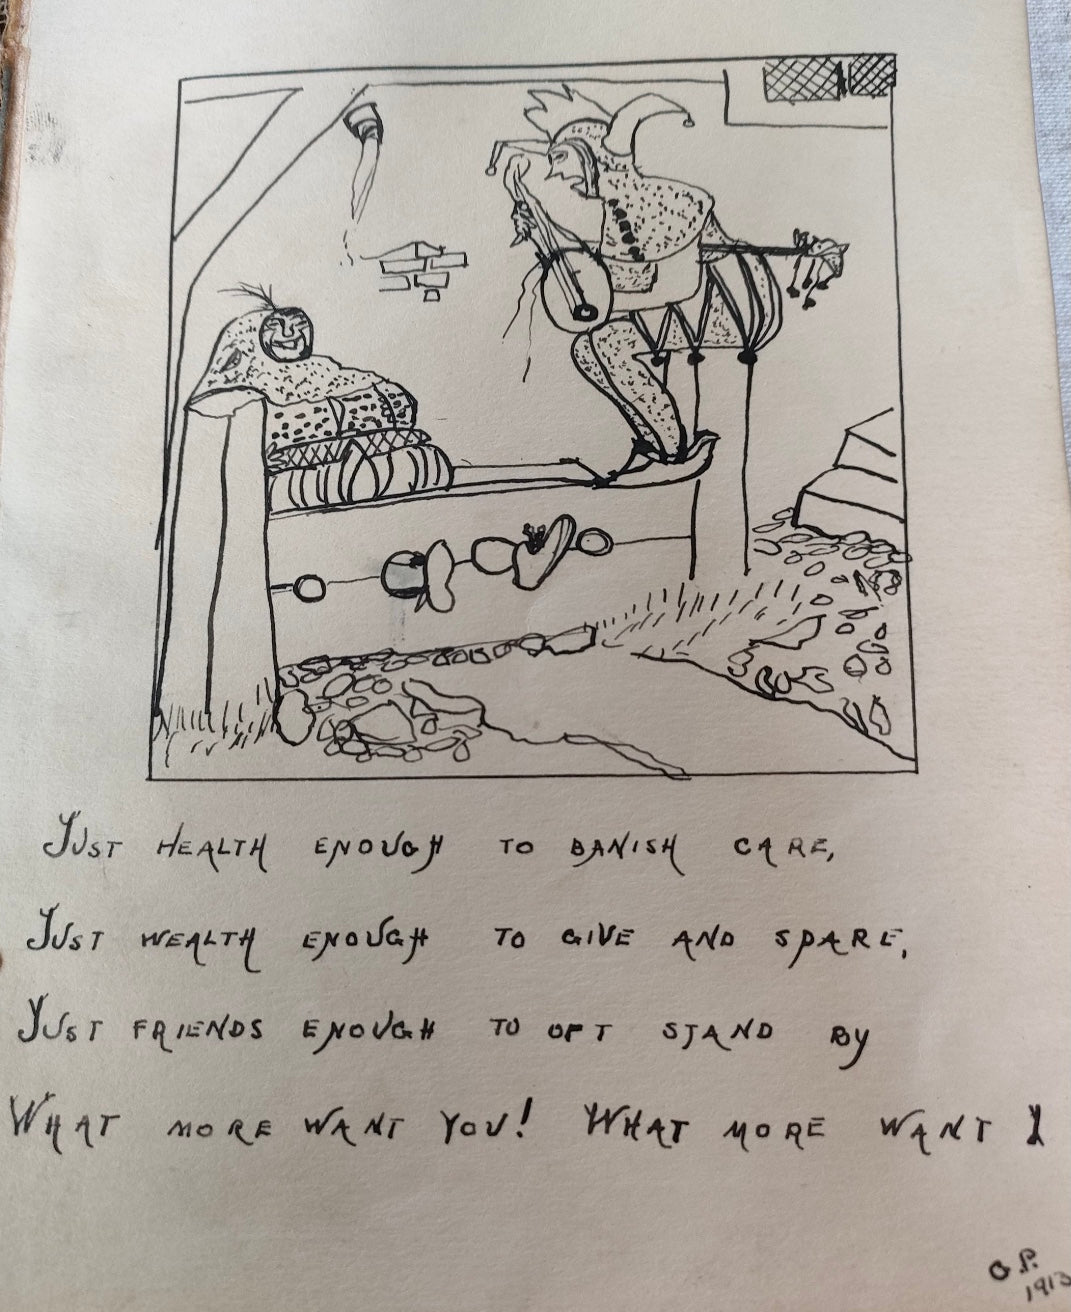 JUST HEALTH ENOUGH TO BANISH CARE,
JUST WEALTH ENOUGH TO GIVE AND SPARE,
JUST FRIENDS ENOUGH TO OFT STAND BY
WHAT MORE WANT YOU! WHAT MORE WANT I
G.P.
1913